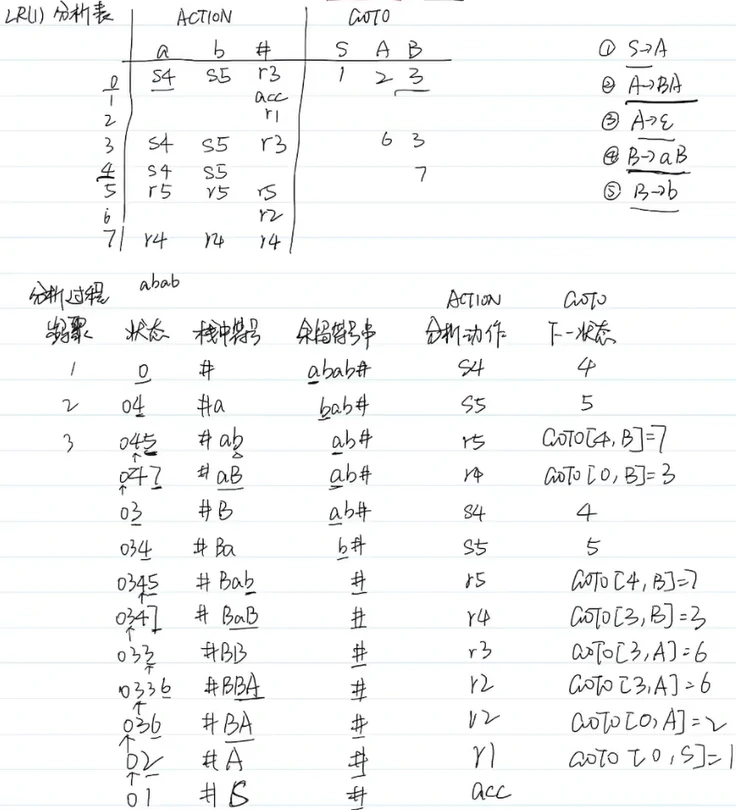 LR(1) 分析表 ACTION GOTO
a b # S A B ① S→A
0 S4 S5 r3 1 2 3 ② A→BA
1 acc
2 r1 ③ A→ε
3 S4 S5 r3 6 3
4 S4 S5 7 ④ B→aB
5 r5 r5 r5 ⑤ B→b
6 r2
7 r4 r4 r4
分析过程 abab ACTION GOTO
步骤 状态 栈中符号 余留符号串 分析动作 下一状态
1 0 # abab# S4 4
2 04 #a bab# S5 5
3 045 #ab ab# r5 GOTO[4,B]=7
047 #aB ab# r4 GOTO[0,B]=3
03 #B ab# S4 4
034 #Ba b# S5 5
0345 #Bab # r5 GOTO[4,B]=7
0347 #BaB # r4 GOTO[3,B]=3
033 #BB # r3 GOTO[3,A]=6
0336 #BBA # r2 GOTO[3,A]=6
036 #BA # r2 GOTO[0,A]=2
02 #A # r1 GOTO[0,S]=1
01 #S # acc